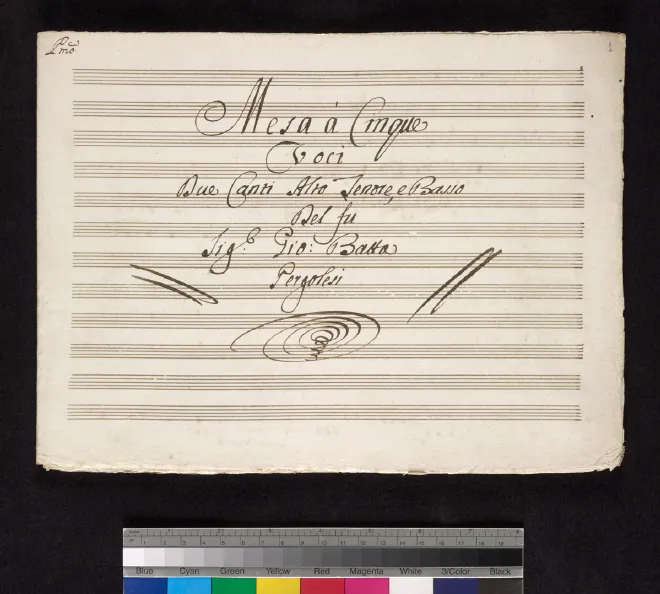 P.mo
1
Mesa à Cinque
Voci
Due Canti Alto Tenore, e Basso
Del fu
Sig.e Gio: Batta
Pergolesi
1 2 3 4 5 6 7 8
1 2 3 4 5 6 7 8 9 10 11 12 13 14 15 16 17 18 19
Blue Cyan Green Yellow Red Magenta White 3/Color Black